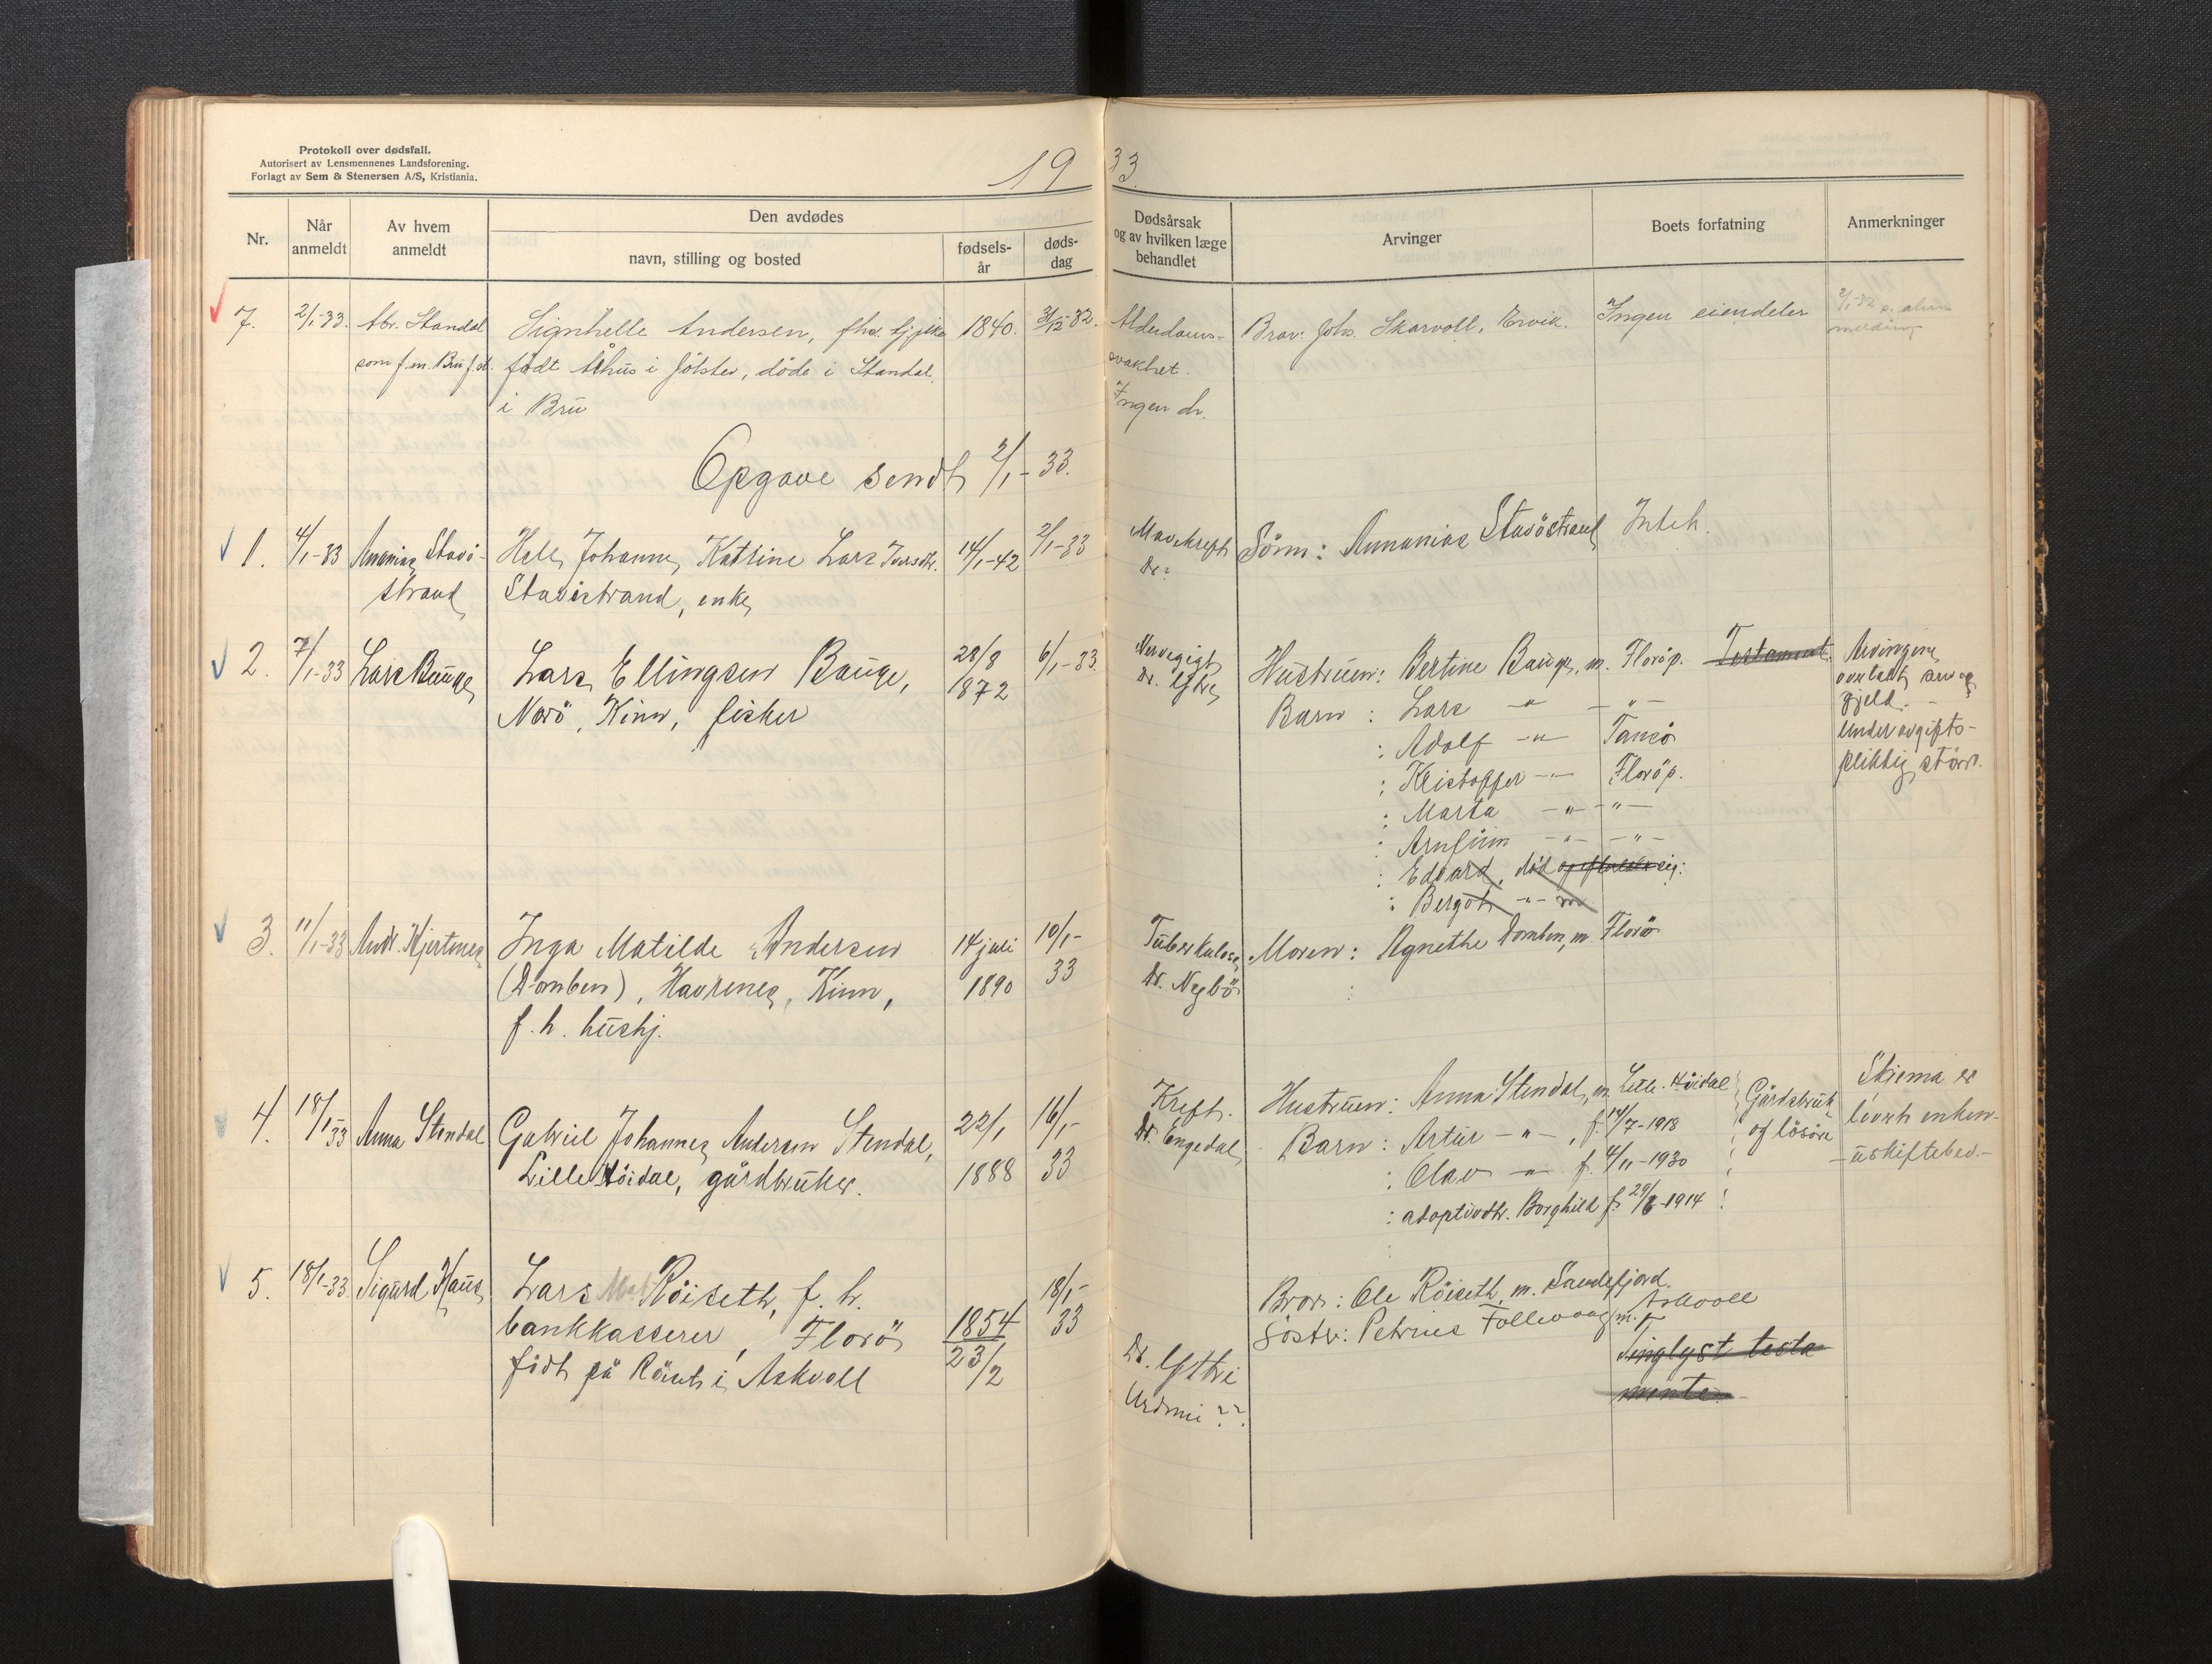 Protokoll over dødsfall.
Autorisert av Lensmennenes Landsforening.
Forlagt av Sem & Stenersen A/S, Kristiania.
19 33
Nr.
Når anmeldt
Av hvem anmeldt
Den avdødes
navn, stilling og bosted
fødsels-år
døds-dag
Dødsårsak og av hvilken læge behandlet
Arvinger
Boets forfatning
Anmerkninger
7. 2/1-33. Abr. Standal Signhelle Andersen, 1840. 31/12-32. Alderdoms- Bror: Johs. Skarvoll, Ervik. Ingen eiendeler
som f.m. Bru f.d. født Åhus i Jölster, døde i Standal svakhet.
i Bru Ingen dr.
melding
Opgave sendt 2/1-33.
1. 4/1-33 Ananias Stavö- Johanne Katrine Lars Iversdtr. 14/1-42 2/1-33 Mavekreft Sönn: Annanias Stavöstrand Intet.
strand Stavöstrand, enke Dr?
2. 7/1-33 Lars Bauge Lars Ellingsen Bauge, 28/8 6/1-33. Hustruen: Bertine Bauge, m. Florö p. Testament. Arvingene
Norö, Kinn, fisker 1872 Barn: Lars -"- -"- overtatt arv og
gjeld. -
: Adolf -"- Tansö Under avgifts-
: Kristoffer -"- Florö p. pliktig störr.
: Marta -"- -"-
: Arnfinn -"- -"-
: Edvard, död
: Bergot -"-
3. 11/1-33 Andr. Hjertenes Inga Matilde Andersen 14 juli 10/1- Tuberkulose Moren: Agnethe Domben, m. Florö
(Domben), Havrenes, Kinn, 1890 33 Dr. Nesbö
f. h. hushj.
4. 18/1-33 Anna Stendal Gabriel Johannes Andersen Stendal, 22/1 16/1- Kreft. Hustruen: Anna Stendal, m. Lille Höidal Gårdsbruk Skjema er
Lille Höidal, gårdbruker. 1888 33 Dr. Engedal Barn: Artur -"-, f. 14/7-1918 og lösöre levert enken.
: Olav -"- f. 4/11-1930 - uskiftebev. -
: adoptivdtr. Borghild f. 29/6-1914
5. 18/1-33 Sigurd Haus Lars Röiseth, f. h. 18/1- Bror: Ole Röiseth, m. Sandefjord.
bankkasserer, Florö 1854 33 Söster: Petrine Follevaag m. Askvoll
födt på i Askvoll 23/2 Dr. Tinglyst testa
Uremi?? mente.